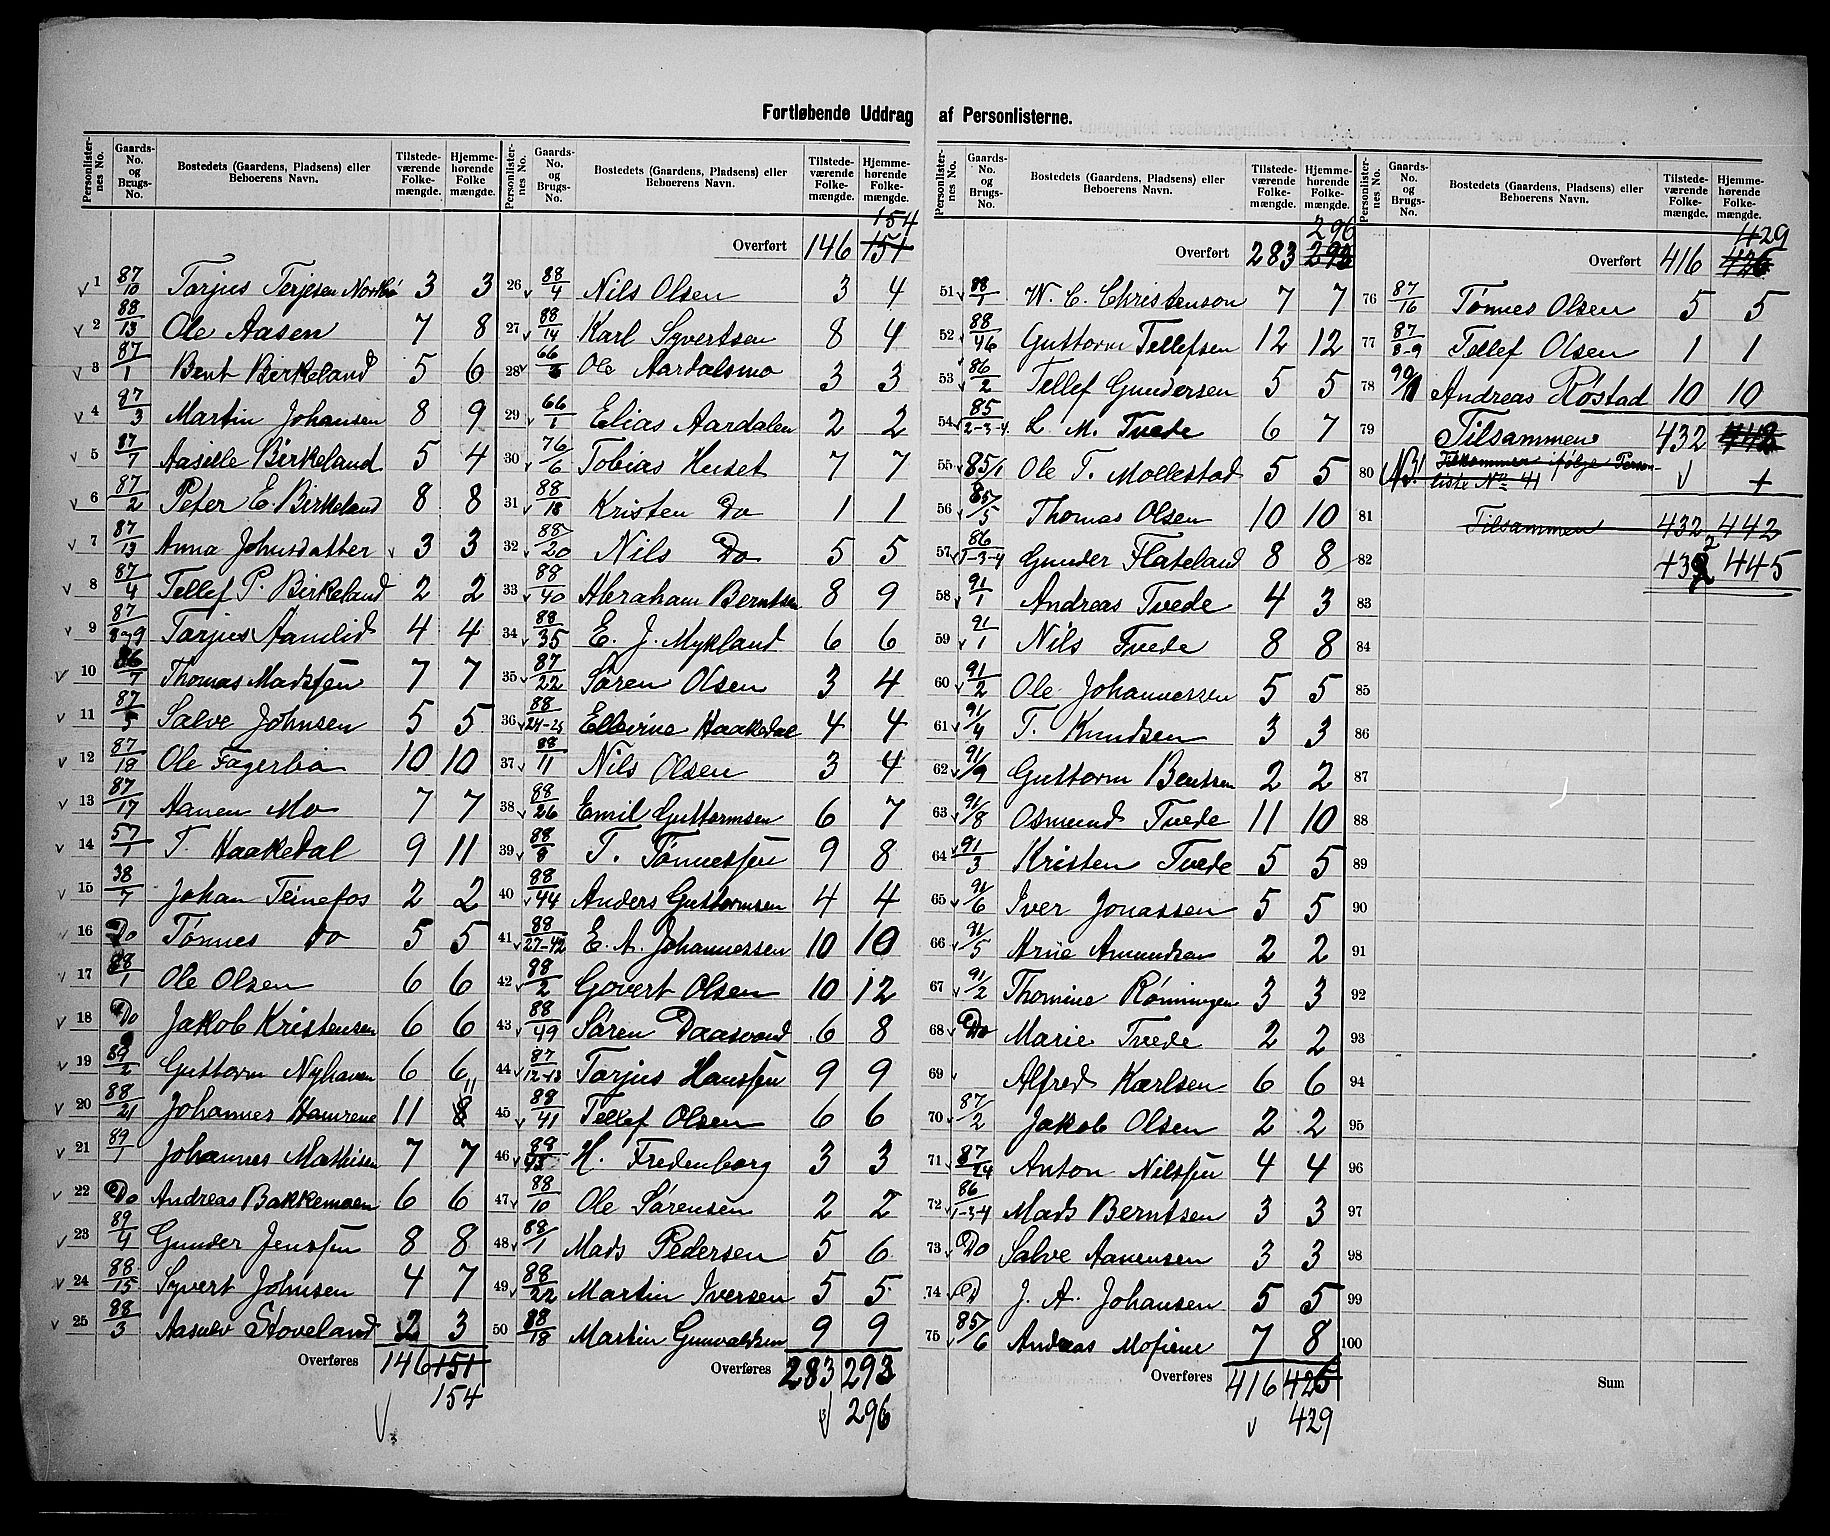 Fortløbende Uddrag af Personlisterne.
Personlister-nes No. Gaards-No. og Brugs-No. Bostedets (Gaardens, Pladsens) eller Beboerens Navn. Tilstede-værende Folke-mængde. Hjemme-hørende Folke mængde.
1 87/10 Tarjus Terjesen 3 3
2 88/13 Ole Aasen 7 8
3 87/1 Bent Birkeland 5 6
4 87/3 Martin Johansen 8 9
5 87/7 Aasille Birkeland 5 4
6 87/2 Peter E. Birkeland 8 8
7 87/13 Anna Johnsdatter 3 3
8 87/4 Tellef P. Birkeland 2 2
9 87/8 og 9 Tarjus Aamlid 4 4
10 86/7 Thomas Madssen 7 7
11 87/5 Salve Johnsen 5 5
12 87/18 Ole Fagerbo 10 10
13 87/17 Aanen Mo 7 7
14 57/1 T. Haakedal 9 11
15 38/7 Johan Teinefos 2 2
16 Do Tønnes Do 5 5
17 88/1 Ole Olsen 6 6
18 Do Jakob Kristensen 6 6
19 89/2 Guttorm Nyhaven 6 6
20 88/21 Johannes Hamrene 11 8 11
21 89/1 Johannes Mathisen 7 7
22 Do Andreas Bakkemoen 6 6
23 89/4 Gunder Jenssen 8 8
24 88/15 Syvert Johnsen 4 7
25 88/3 Aasulv Stoveland 2 3
Overføres 146 151
154
Personlister-nes No. Gaards-No. og Brugs-No. Bostedets (Gaardens, Pladsens) eller Beboerens Navn. Tilstede-værende Folke-mængde. Hjemme-hørende Folke-mængde.
154
Overført 146 151
26 88/4 Nils Olsen 3 4
27 88/14 Karl Syvertsen 8 4
28 66/6 Ole Aardalsmo 3 3
29 66/1 Elias Aardalen 2 2
30 76/6 Tobias Huset 7 7
31 88/18 Kristen Do 1 1
32 88/20 Nils Do 5 5
33 88/40 Abraham Berntsen 8 9
34 88/35 E. J. Mykland 6 6
35 87/22 Søren Olsen 3 4
36 88/24-25 Ellevine Haakedal 4 4
37 88/11 Nils Olsen 3 4
38 88/26 Emil Guttormsen 6 7
39 88/8 T. Tønnessen 9 8
40 88/44 Anders Guttormsen 4 4
41 88/27-42 E. A. Johannessen 10 10
42 88/2 Govert Olsen 10 12
43 88/49 Søren Daasvand 6 8
44 87/12-13 Tarjus Hanssen 9 9
45 88/41 Tellef Olsen 6 6
46 88/43 H. Fredenborg 3 3
47 88/10 Ole Sørensen 2 2
48 88/1 Mads Pedersen 5 6
49 88/22 Martin Iversen 5 5
50 88/18 Martin Gunvaldsen 9 9
Overføres 283 293
296
Personlister-nes No. Gaards-No. og Brugs-No. Bostedets (Gaardens, Pladsens) eller Beboerens Navn. Tilstede-værende Folke-mængde. Hjemme-hørende Folke-mængde.
296
Overført 283 293
51 88/1 W. C. Christenson 7 7
52 88/46 Guttorm Tellefsen 12 12
53 86/2 Tellef Gundersen 5 5
54 85/2-3-4 L. M. Tvede 6 7
55 85/1 Ole T. Mollestad 5 5
56 85/5 Thomas Olsen 10 10
57 86/1-3-4 Gunder Flateland 8 8
58 91/1 Andreas Tvede 4 3
59 91/1 Nils Tvede 8 8
60 91/2 Ole Johannessen 5 5
61 91/4 T. Knudsen 3 3
62 91/9 Guttorm Bentsen 2 2
63 91/8 Osmund Tvede 11 10
64 91/3 Kristen Tvede 5 5
65 91/6 Iver Jonassen 5 5
66 91/5 Arne Amundsen 2 2
67 91/2 Thomine Rønningen 3 3
68 Do Marie Tvede 2 2
69 Alfred Karlsen 6 6
70 87/2 Jakob Olsen 2 2
71 87/24 Anton Nilssen 4 4
72 86/1-3-4 Mads Berntsen 3 3
73 Do Salve Aanensen 3 3
74 D J. A. Johansen 5 5
75 85/6 Andreas Mofiene 7 8
Overføres 416 426
429
Personlister-nes No. Gaards-No. og Brugs-No. Bostedets (Gaardens, Pladsens) eller Beboerens Navn. Tilstede-værende Folke-mængde. Hjemme-hørende Folke-mængde.
429
Overført 416 426
76 87/16 Tønnes Olsen 5 5
77 87/8-9 Tellef Olsen 1 1
78 Andreas Røstad 10 10
79 Tilsammen 432 442
80 NB! Tilkommer ifølge Person-
liste No 41
81 Tilsammen 432 442
82 432 445
83
84
85
86
87
88
89
90
91
92
93
94
95
96
97
98
99
100
Sum